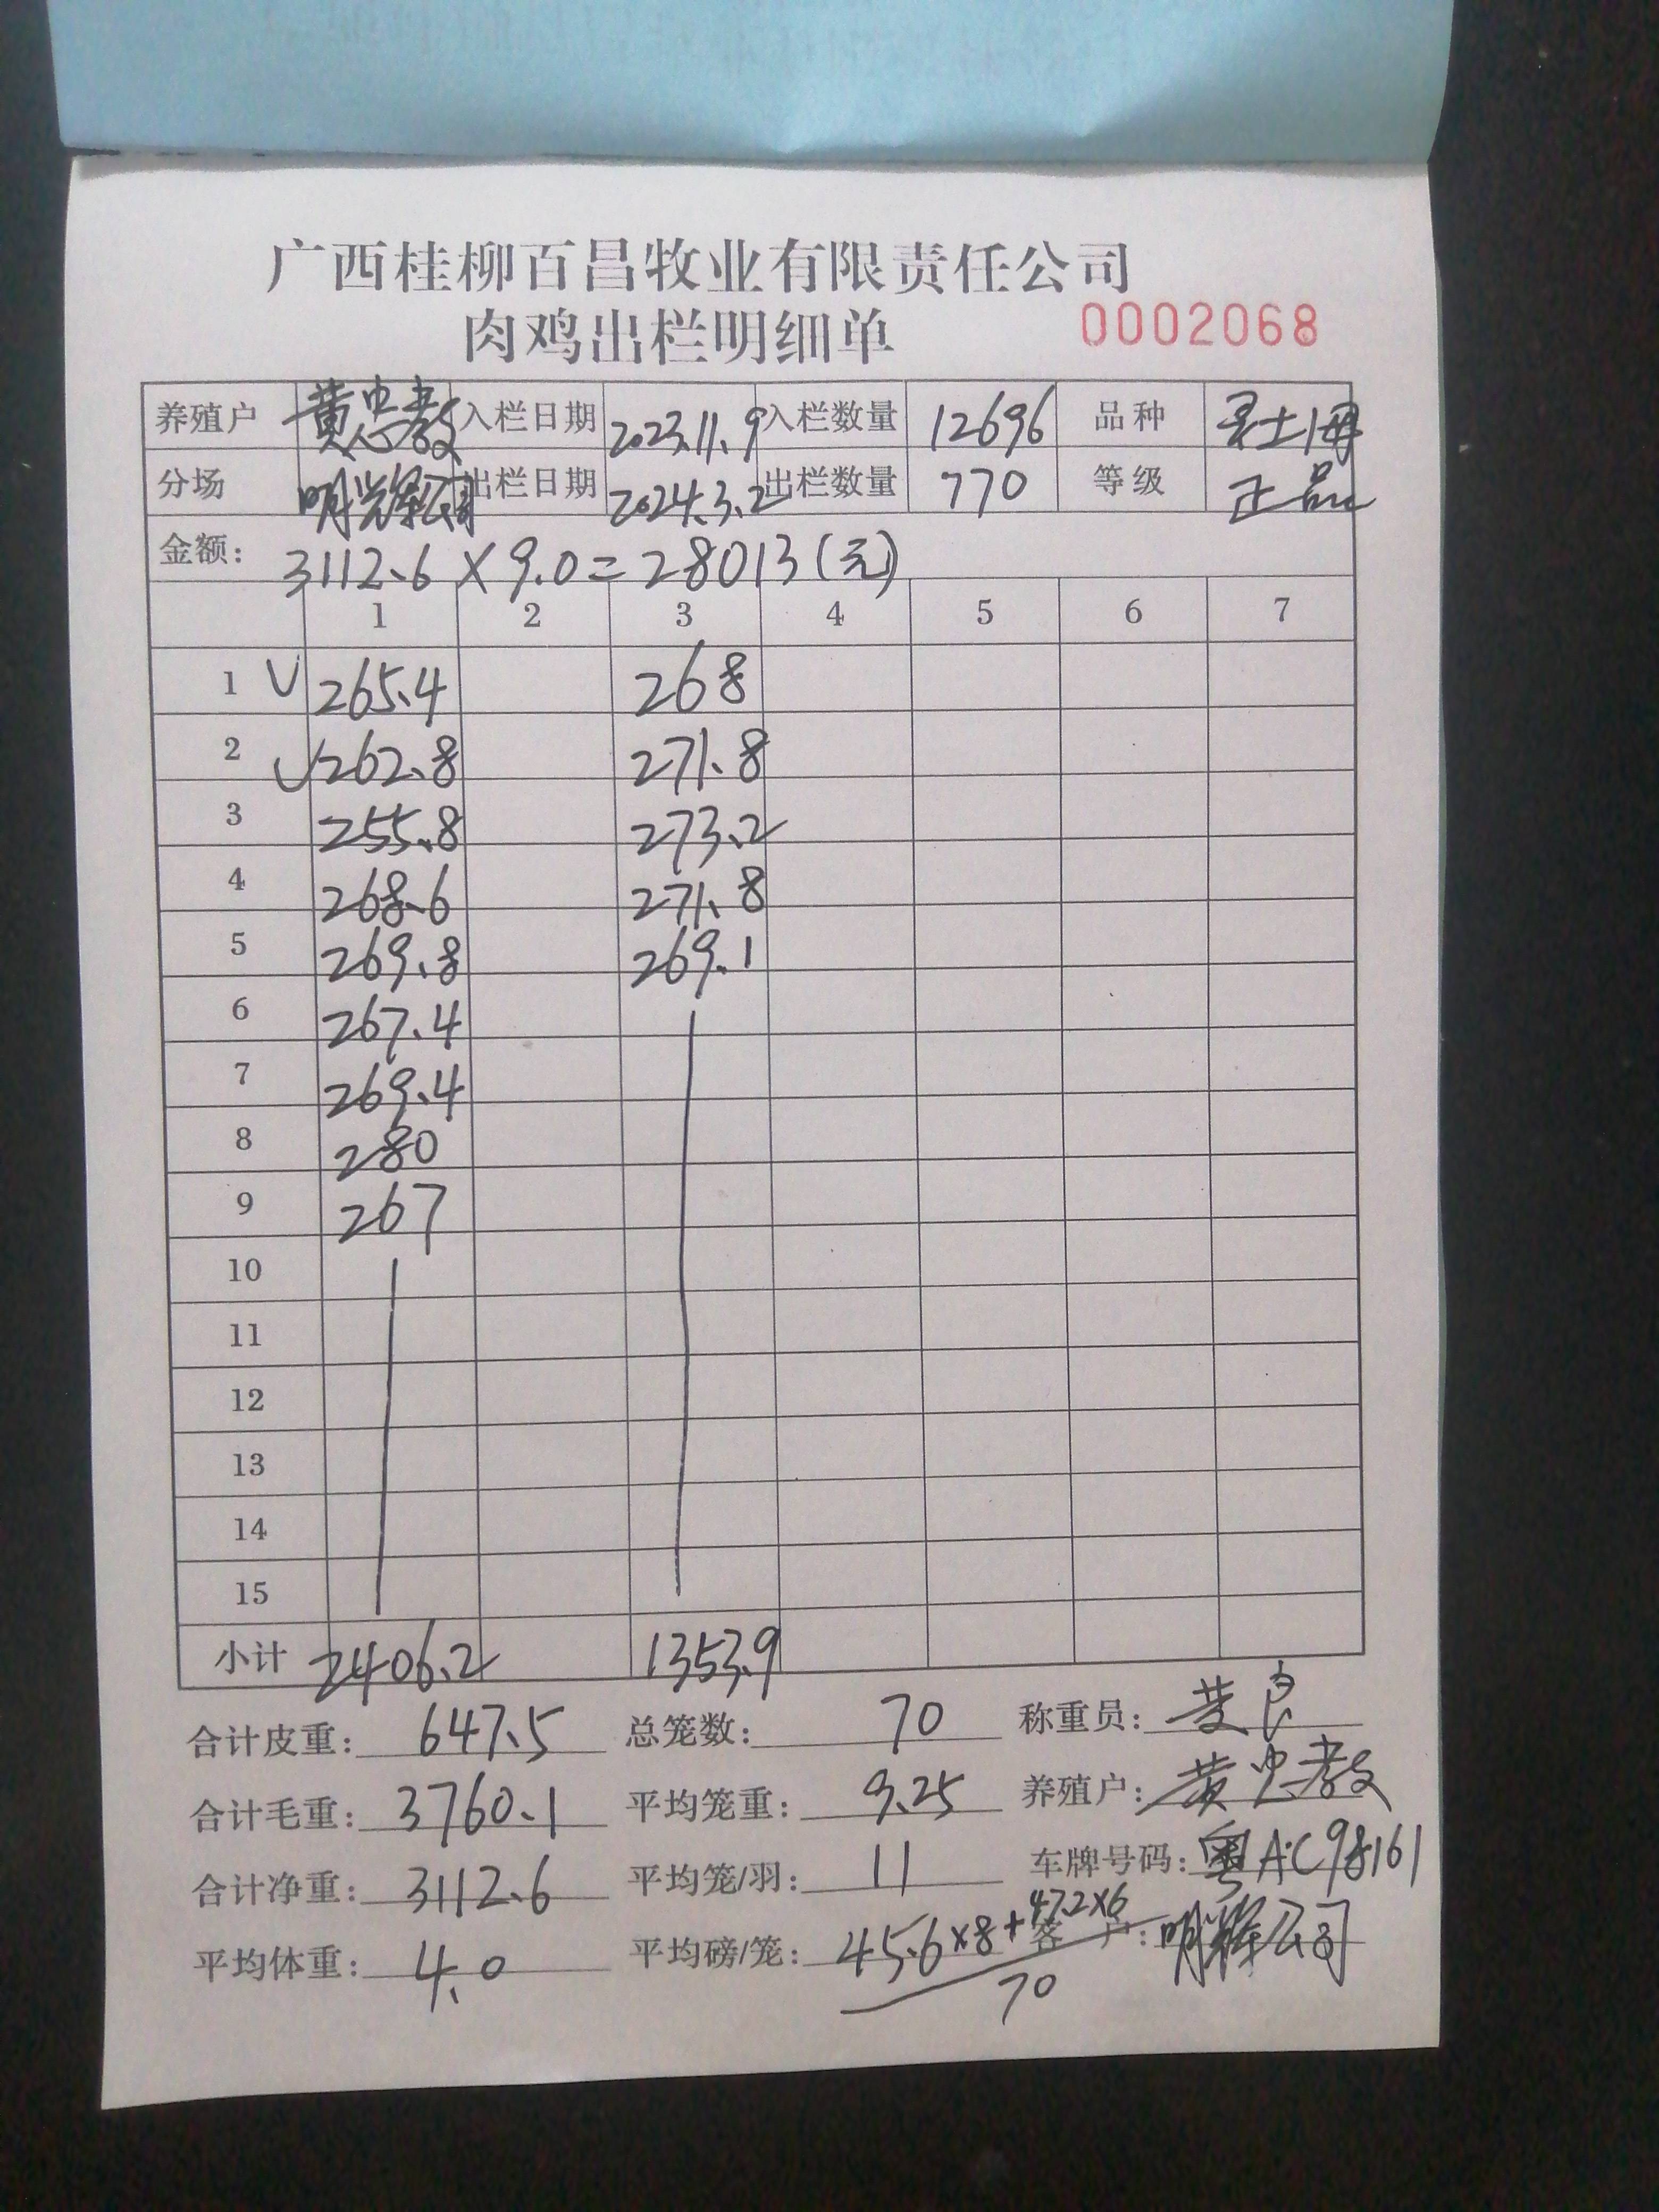 广西桂柳百昌牧业有限责任公司
肉鸡出栏明细单 0002068
养殖户 黄忠教 入栏日期 2023.11.9 入栏数量 12696 品种
分场 明辉公司 出栏日期 2024.3.2 出栏数量 770 等级 正品
金额: 3112.6×9.0=28013(元)
1 2 3 4 5 6 7
1 265.4 268
2 262.8 271.8
3 255.8 273.2
4 268.6 271.8
5 269.8 269.1
6 267.4
7 269.4
8 280
9 267
10
11
12
13
14
15
小计 2406.2 1353.9
合计皮重: 647.5 总笼数: 70 称重员:
合计毛重: 3760.1 平均笼重: 9.25 养殖户: 黄忠教
合计净重: 3112.6 平均笼/羽: 11 车牌号码: 粤A·C98161
平均体重: 4.0 平均磅/笼: 45.6×8+47.2×6 客户: 明辉公司
70